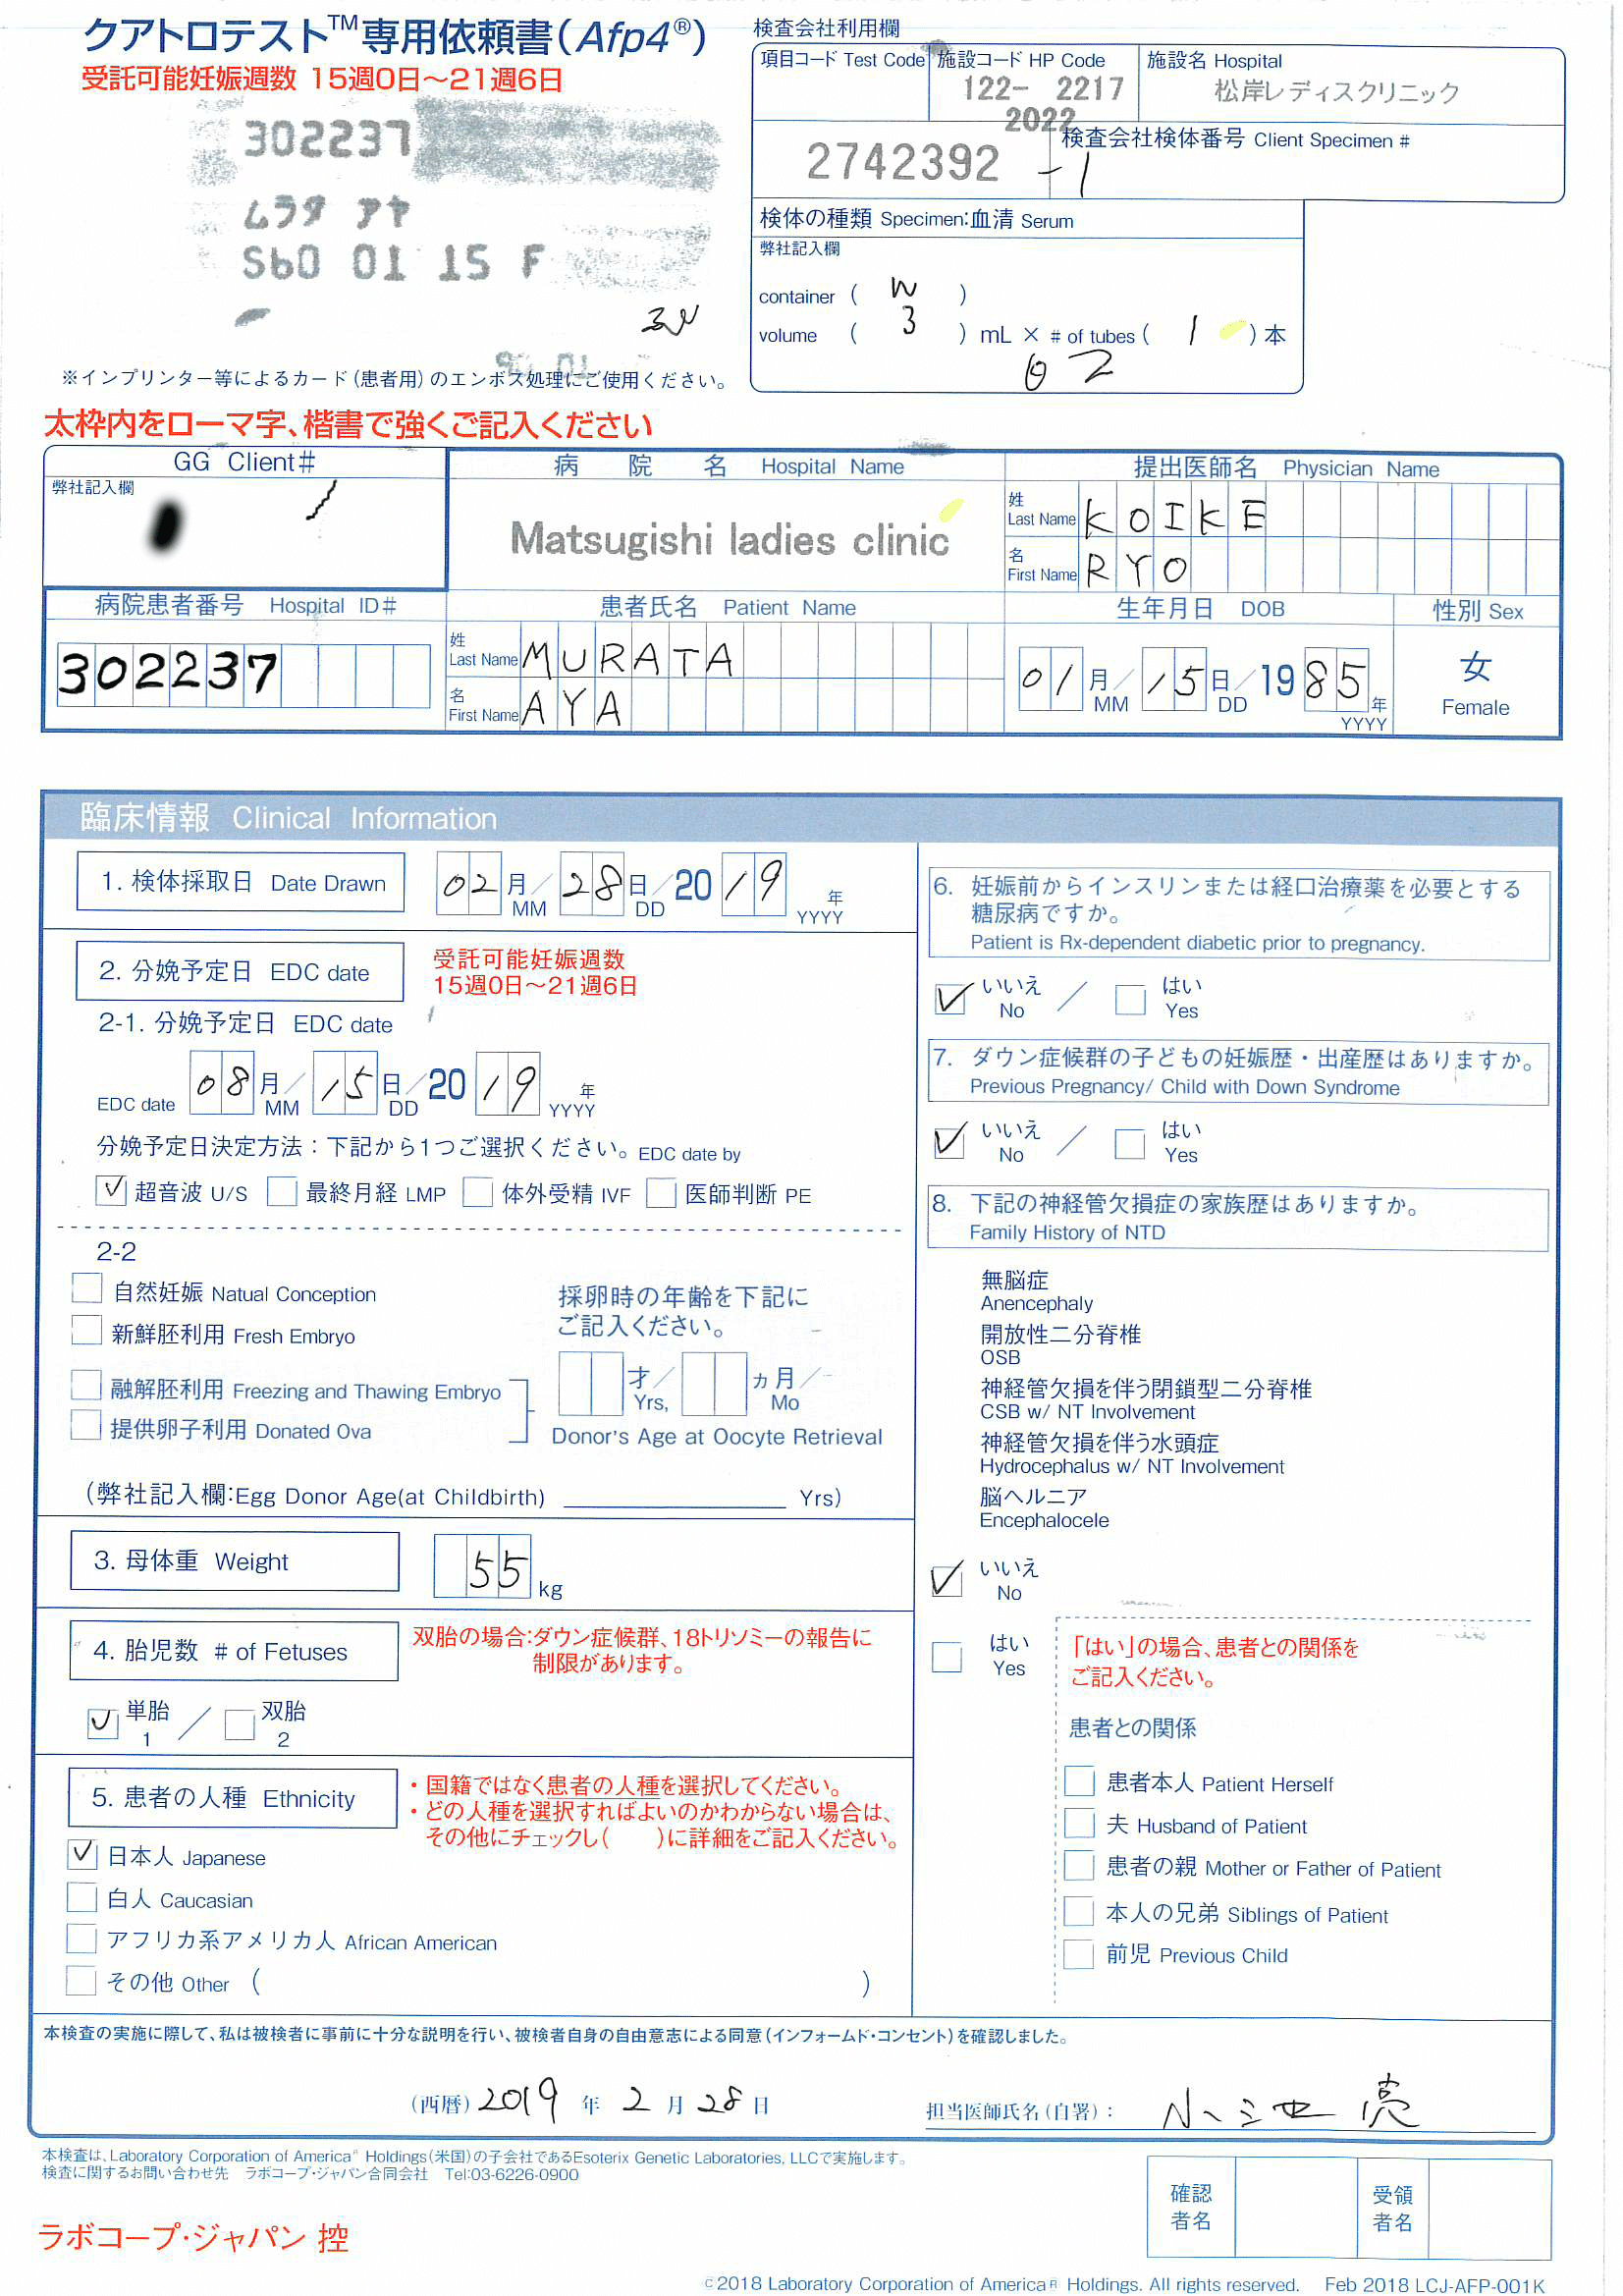 クアトロテスト™専用依頼書(Afp4®)
受託可能妊娠週数 15週0日～21週6日
302237
ムラタ アヤ
S60 01 15 F
※インプリンター等によるカード(患者用)のエンボス処理にご使用ください。
検査会社利用欄
項目コード Test Code
施設コード HP Code
122- 2217
2022
施設名 Hospital
松岸レディスクリニック
検査会社検体番号 Client Specimen #
2742392 -1
検体の種類 Specimen:血清 Serum
弊社記入欄
container ( W )
volume ( 3 ) mL × # of tubes ( 1 ) 本
太枠内をローマ字、楷書で強くご記入ください
GG Client#
弊社記入欄
病 院 名 Hospital Name
Matsugishi ladies clinic
提出医師名 Physician Name
姓 Last Name KOIKE
名 First Name RYO
病院患者番号 Hospital ID#
302237
患者氏名 Patient Name
姓 Last Name MURATA
名 First Name AYA
生年月日 DOB
01 月/ 15 日/ 19 85 年
MM DD YYYY
性別 Sex
女
Female
臨床情報 Clinical Information
1. 検体採取日 Date Drawn
02 月/ 28 日/ 20 19 年
MM DD YYYY
2. 分娩予定日 EDC date
受託可能妊娠週数
15週0日～21週6日
2-1. 分娩予定日 EDC date
EDC date 08 月/ 15 日/ 20 19 年
MM DD YYYY
分娩予定日決定方法：下記から1つご選択ください。EDC date by
✓ 超音波 U/S □ 最終月経 LMP □ 体外受精 IVF □ 医師判断 PE
2-2
□ 自然妊娠 Natual Conception
□ 新鮮胚利用 Fresh Embryo
□ 融解胚利用 Freezing and Thawing Embryo
□ 提供卵子利用 Donated Ova
採卵時の年齢を下記に
ご記入ください。
才/ ヵ月/
Yrs, Mo
Donor's Age at Oocyte Retrieval
(弊社記入欄:Egg Donor Age(at Childbirth) Yrs)
3. 母体重 Weight
55 kg
4. 胎児数 # of Fetuses
双胎の場合:ダウン症候群、18トリソミーの報告に
制限があります。
✓ 単胎 1 / □ 双胎 2
5. 患者の人種 Ethnicity
・国籍ではなく患者の人種を選択してください。
・どの人種を選択すればよいのかわからない場合は、
その他にチェックし( )に詳細をご記入ください。
✓ 日本人 Japanese
□ 白人 Caucasian
□ アフリカ系アメリカ人 African American
□ その他 Other ( )
6. 妊娠前からインスリンまたは経口治療薬を必要とする
糖尿病ですか。
Patient is Rx-dependent diabetic prior to pregnancy.
✓ いいえ No / □ はい Yes
7. ダウン症候群の子どもの妊娠歴・出産歴はありますか。
Previous Pregnancy/ Child with Down Syndrome
✓ いいえ No / □ はい Yes
8. 下記の神経管欠損症の家族歴はありますか。
Family History of NTD
無脳症
Anencephaly
開放性二分脊椎
OSB
神経管欠損を伴う閉鎖型二分脊椎
CSB w/ NT Involvement
神経管欠損を伴う水頭症
Hydrocephalus w/ NT Involvement
脳ヘルニア
Encephalocele
✓ いいえ No
□ はい Yes
「はい」の場合、患者との関係を
ご記入ください。
患者との関係
□ 患者本人 Patient Herself
□ 夫 Husband of Patient
□ 患者の親 Mother or Father of Patient
□ 本人の兄弟 Siblings of Patient
□ 前児 Previous Child
本検査の実施に際して、私は被検者に事前に十分な説明を行い、被検者自身の自由意志による同意(インフォームド・コンセント)を確認しました。
(西暦) 2019 年 2 月 28 日
担当医師氏名(自署)： 小池 亮
本検査は、Laboratory Corporation of America® Holdings(米国)の子会社であるEsoterix Genetic Laboratories, LLCで実施します。
検査に関するお問い合わせ先 ラボコープ・ジャパン合同会社 Tel:03-6226-0900
確認者名
受領者名
ラボコープ・ジャパン 控
©2018 Laboratory Corporation of America® Holdings. All rights reserved. Feb 2018 LCJ-AFP-001K